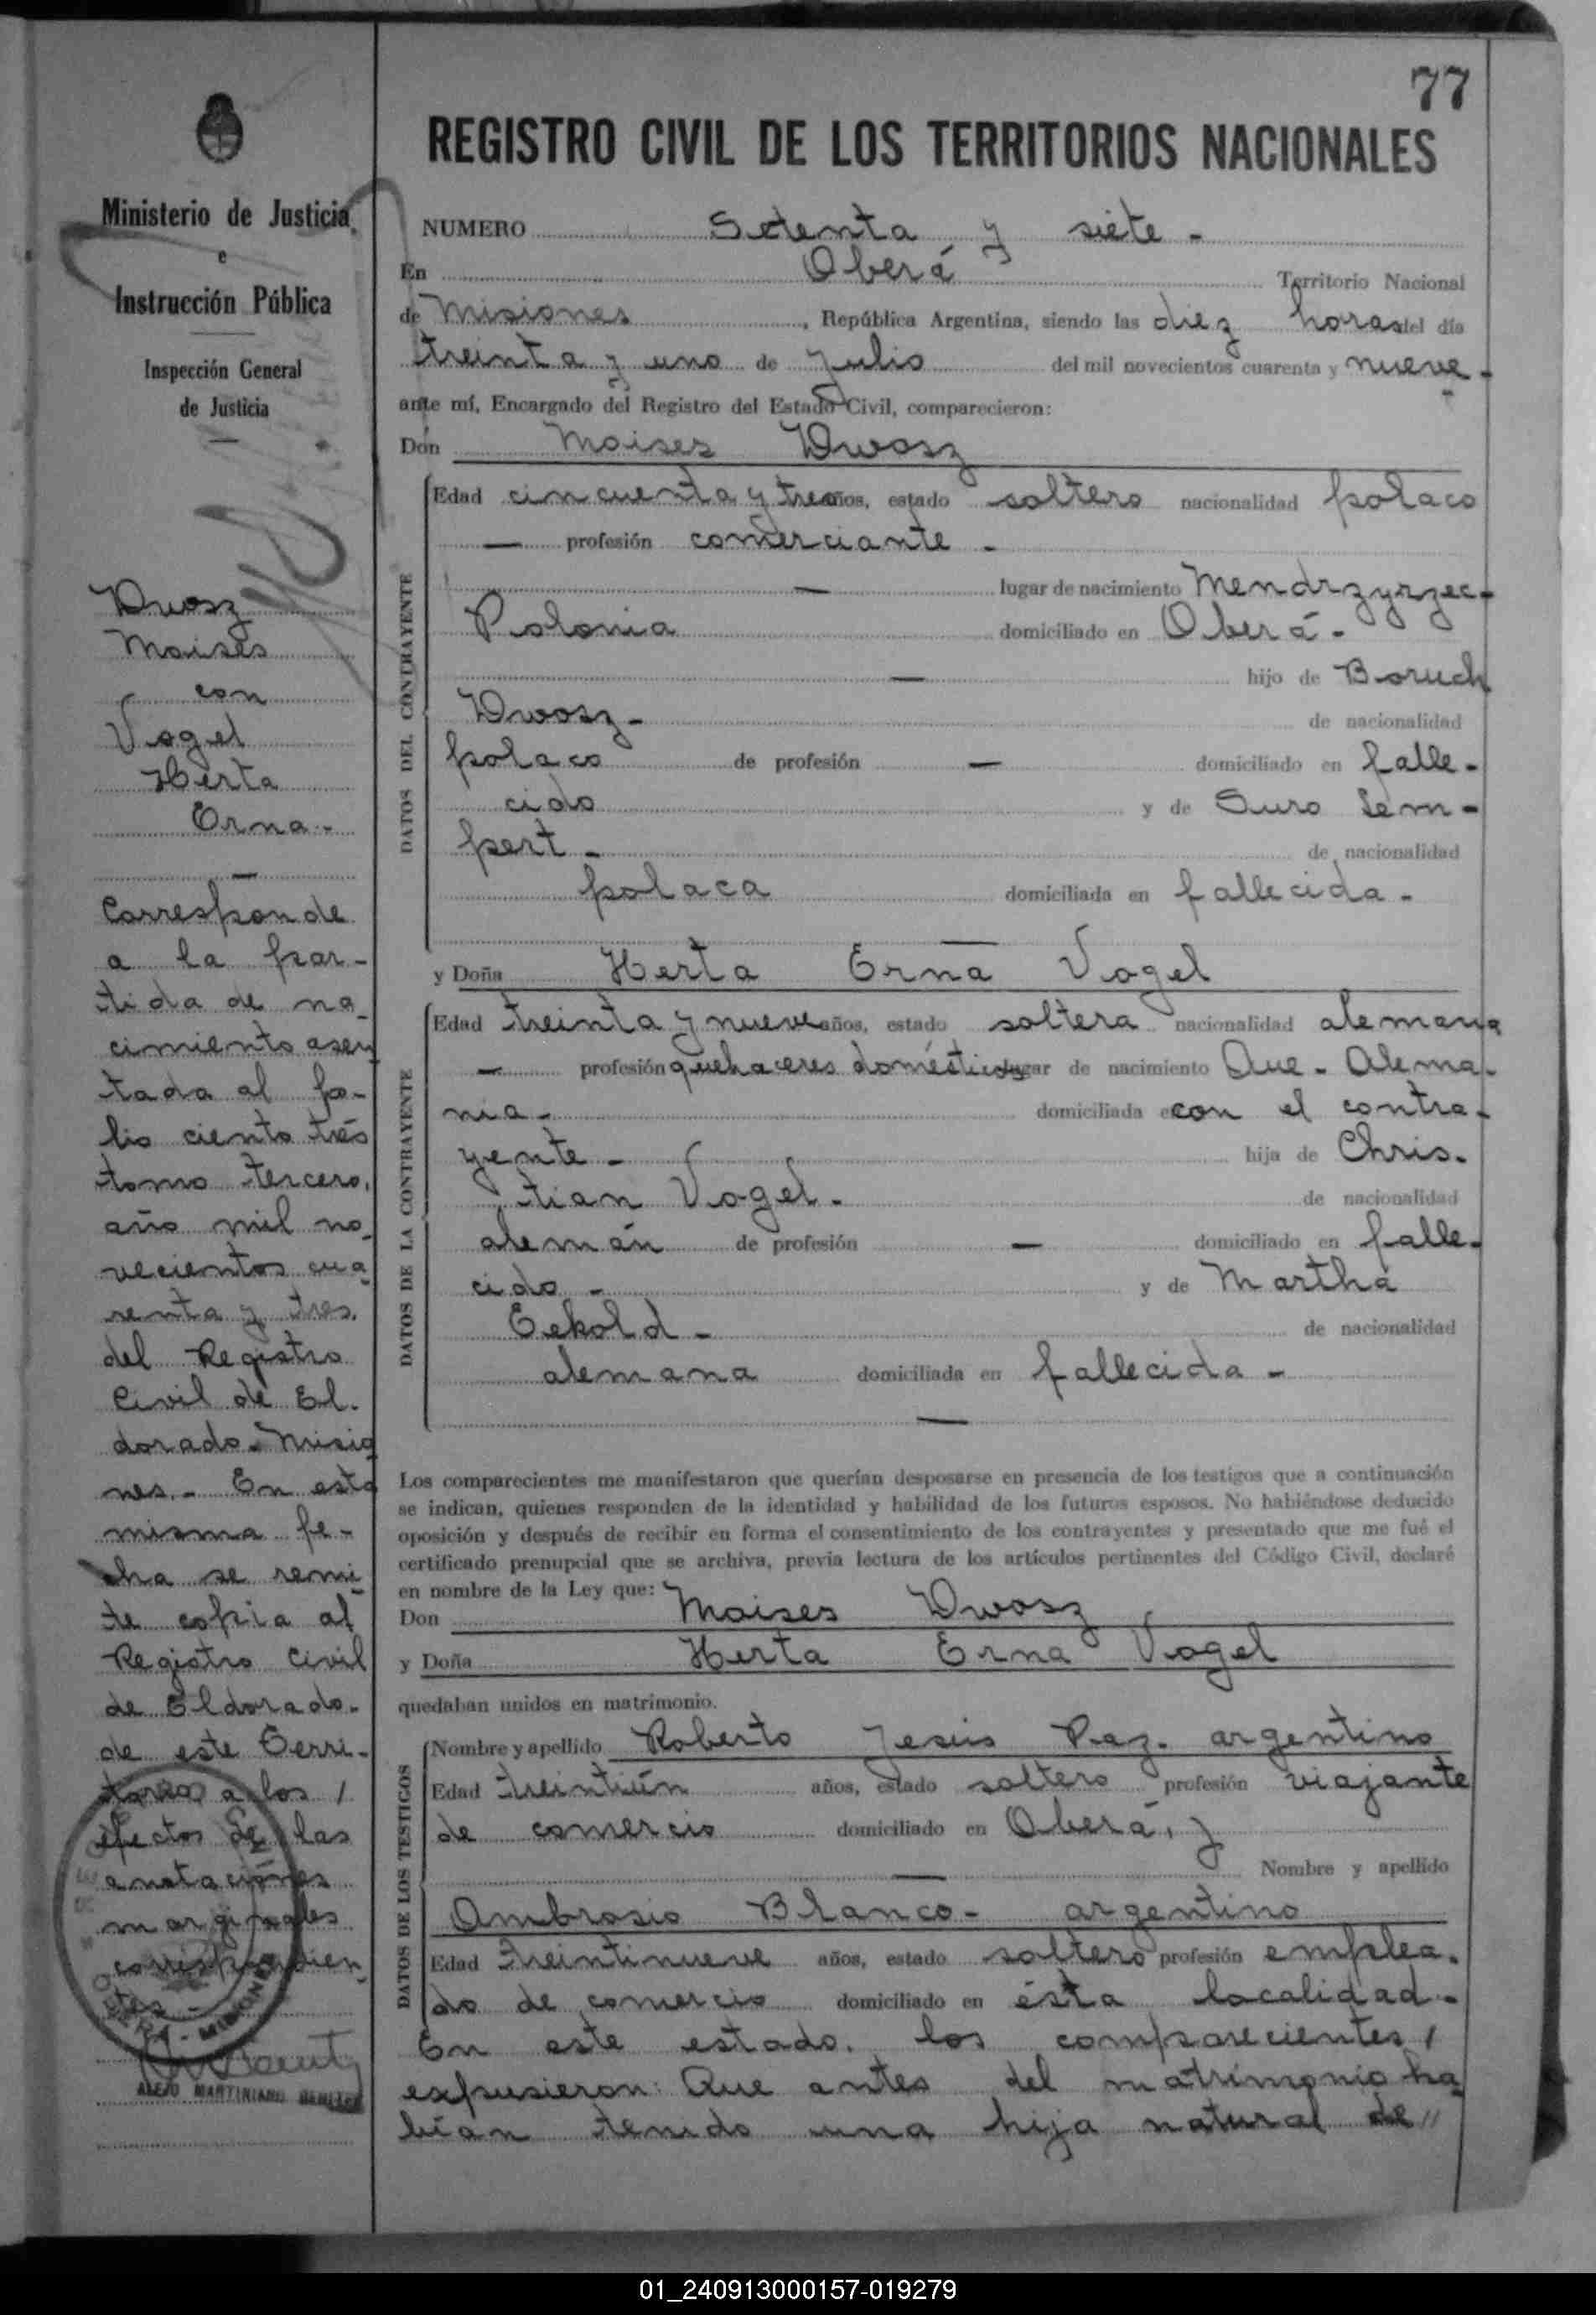 77
REGISTRO CIVIL DE LOS TERRITORIOS NACIONALES
Ministerio de Justicia
e
Instrucción Pública
Inspección General
de Justicia
Dwosz
Moisés
con
Vogel
Herta
Erna.-
Corresponde
a la par-
tida de na-
cimiento asen
tada al fo-
lio ciento tres
tomo tercero,
año mil no-
vecientos cua
renta y tres.
del Registro
Civil de El-
dorado. Misio
nes.- En esta
misma fe-
cha se remi-
te copia al
Registro Civil
de Eldorado.
de este Terri-
torio a los /
efectos de las
anotaciones
marginales
correspondien
tes.-
OBERA - MISIONES
ALEJO MARTINIANO BENITEZ
NUMERO Setenta y siete -
En Oberá Territorio Nacional
de Misiones, República Argentina, siendo las diez horas del día
treinta y uno de Julio del mil novecientos cuarenta y nueve -
ante mí, Encargado del Registro del Estado Civil, comparecieron:
Don Moises Dwosz
DATOS DEL CONTRAYENTE
Edad cincuenta y tres años, estado soltero nacionalidad polaco
— profesión comerciante -
— lugar de nacimiento Mendrzyrzec-
Polonia domiciliado en Oberá.-
— hijo de Boruch
Dwosz - de nacionalidad
polaco de profesión — domiciliado en falle-
cido y de Suro Lem-
pert - de nacionalidad
polaca domiciliada en fallecida -
y Doña Herta Erna Vogel
DATOS DE LA CONTRAYENTE
Edad treinta y nueve años, estado soltera nacionalidad alemana
— profesión quehaceres domésticos lugar de nacimiento Aue - Alema-
nia - domiciliada en con el contra-
yente - hija de Chris-
tian Vogel - de nacionalidad
alemán de profesión — domiciliado en falle-
cido - y de Martha
Eekold - de nacionalidad
alemana domiciliada en fallecida -
Los comparecientes me manifestaron que querían desposarse en presencia de los testigos que a continuación
se indican, quienes responden de la identidad y habilidad de los futuros esposos. No habiéndose deducido
oposición y después de recibir en forma el consentimiento de los contrayentes y presentado que me fué el
certificado prenupcial que se archiva, previa lectura de los artículos pertinentes del Código Civil, declaré
en nombre de la Ley que:
Don Moises Dwosz
y Doña Herta Erna Vogel
quedaban unidos en matrimonio.
DATOS DE LOS TESTIGOS
Nombre y apellido Roberto Jesús Paz. argentino
Edad treintiún años, estado soltero profesión viajante
de comercio domiciliado en Oberá, y
— Nombre y apellido
Ambrosio Blanco - argentino
Edad treintinueve años, estado soltero profesión emplea-
do de comercio domiciliado en ésta localidad -
En este estado, los comparecientes /
expusieron: Que antes del matrimonio ha
bían tenido una hija natural de //
01_240913000157-019279